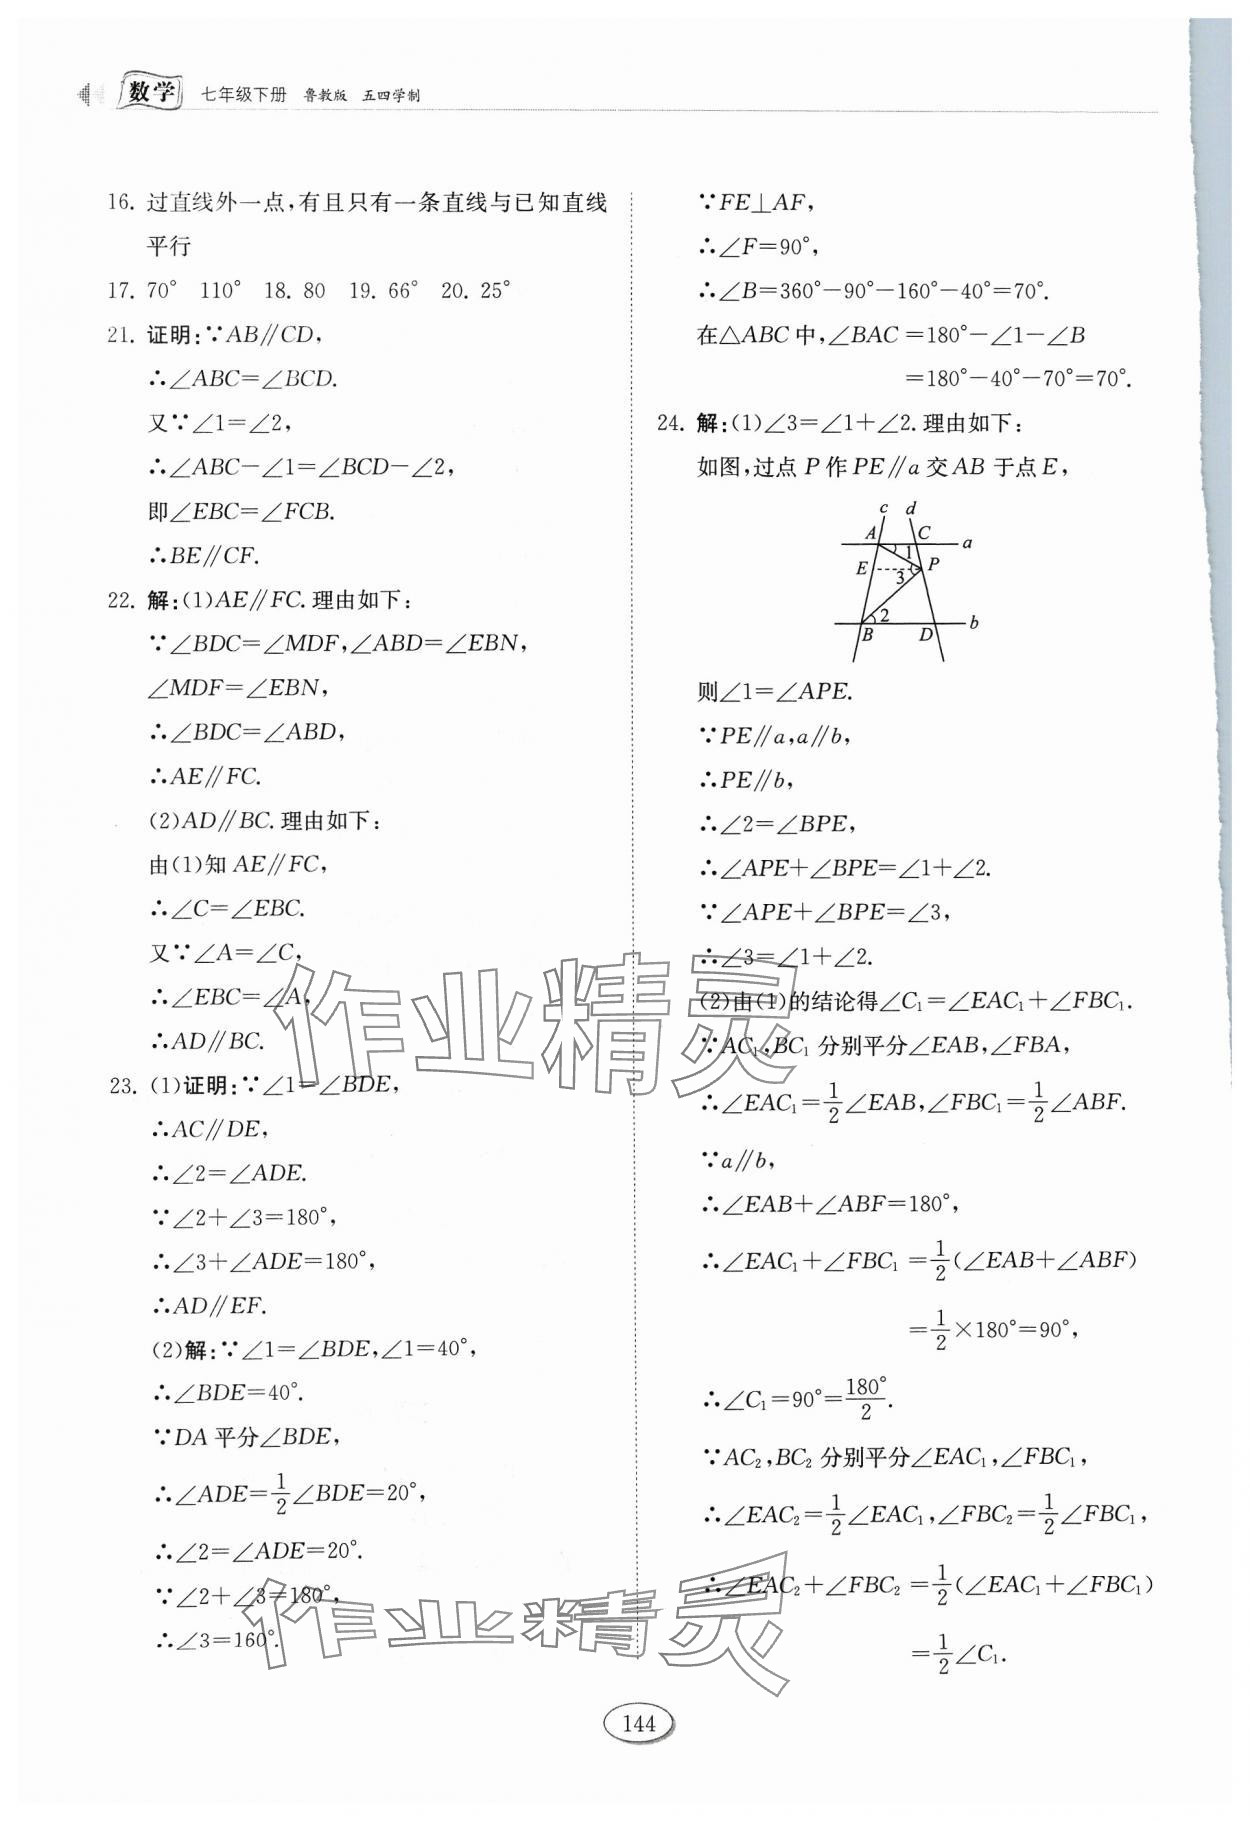 数学 七年级下册 鲁教版 五四学制
16. 过直线外一点,有且只有一条直线与已知直线
平行
17. 70° 110° 18. 80 19. 66° 20. 25°
21. 证明:∵AB∥CD,
∴∠ABC=∠BCD.
又∵∠1=∠2,
∴∠ABC-∠1=∠BCD-∠2,
即∠EBC=∠FCB.
∴BE∥CF.
22. 解:(1)AE∥FC.理由如下:
∵∠BDC=∠MDF,∠ABD=∠EBN,
∠MDF=∠EBN,
∴∠BDC=∠ABD,
∴AE∥FC.
(2)AD∥BC.理由如下:
由(1)知AE∥FC,
∴∠C=∠EBC.
又∵∠A=∠C,
∴∠EBC=∠A,
∴AD∥BC.
23. (1)证明:∵∠1=∠BDE,
∴AC∥DE,
∴∠2=∠ADE.
∵∠2+∠3=180°,
∴∠3+∠ADE=180°,
∴AD∥EF.
(2)解:∵∠1=∠BDE,∠1=40°,
∴∠BDE=40°.
∵DA平分∠BDE,
∴∠ADE=1/2∠BDE=20°,
∴∠2=∠ADE=20°.
∵∠2+∠3=180°,
∴∠3=160°.
∵FE⊥AF,
∴∠F=90°,
∴∠B=360°-90°-160°-40°=70°.
在△ABC中,∠BAC=180°-∠1-∠B
=180°-40°-70°=70°.
24. 解:(1)∠3=∠1+∠2.理由如下:
如图,过点P作PE∥a交AB于点E,
c d
A C a
1
E 3 P
2
B D b
则∠1=∠APE.
∵PE∥a,a∥b,
∴PE∥b,
∴∠2=∠BPE,
∴∠APE+∠BPE=∠1+∠2.
∵∠APE+∠BPE=∠3,
∴∠3=∠1+∠2.
(2)由(1)的结论得∠C₁=∠EAC₁+∠FBC₁.
∵AC₁,BC₁分别平分∠EAB,∠FBA,
∴∠EAC₁=1/2∠EAB,∠FBC₁=1/2∠ABF.
∵a∥b,
∴∠EAB+∠ABF=180°,
∴∠EAC₁+∠FBC₁=1/2(∠EAB+∠ABF)
=1/2×180°=90°,
∴∠C₁=90°=180°/2.
∵AC₂,BC₂分别平分∠EAC₁,∠FBC₁,
∴∠EAC₂=1/2∠EAC₁,∠FBC₂=1/2∠FBC₁,
∴∠EAC₂+∠FBC₂=1/2(∠EAC₁+∠FBC₁)
=1/2∠C₁.
作业精灵
作业精灵
144